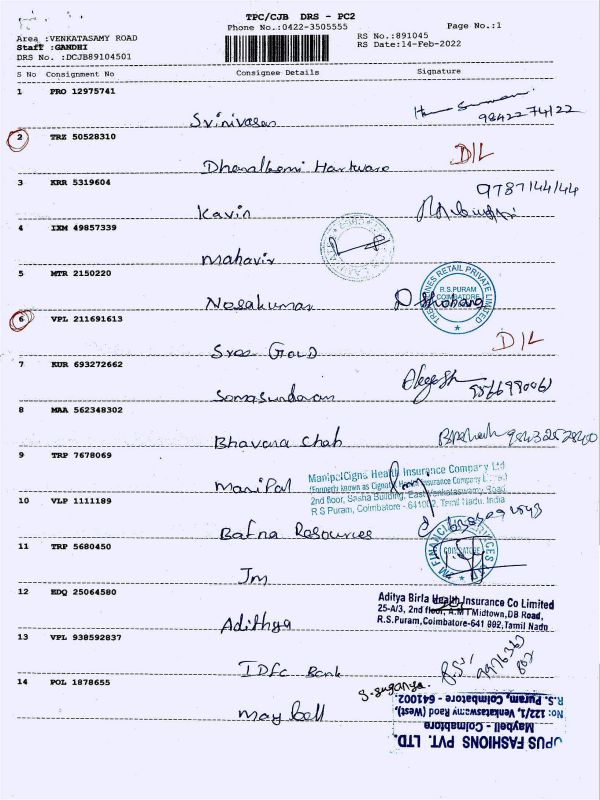 TPC/CJB DRS - PC2
Phone No.:0422-3505555
Page No.:1
Area :VENKATASAMY ROAD
Staff :GANDHI
DRS No. :DCJB89104501
RS No.:891045
RS Date:14-Feb-2022
S No Consignment No Consignee Details Signature
1 PRO 12975741
Srinivasan
98422 74122
2 TRZ 50528310
D/L
3 KRR 5319604
9787144144
Kavin
4 IXM 49857339
Mahavir
5 MTR 2150220
R.S.PURAM
COIMBATORE
6 VPL 211691613
D/L
Sree GOLD
7 KUR 693272662
Somasundaram
8 MAA 562348302
Bhavana Shah
9 TRP 7678069
ManipalCigna Health Insurance Company Ltd
Manipal
2nd floor, Sasha Building, East Venkataswamy Road
R S Puram, Coimbatore - 641002, Tamil Nadu, India
10 VLP 1111189
Bafna Resources
11 TRP 5680450
COIMBATORE
Jm
12 EDQ 25064580
Aditya Birla Health Insurance Co Limited
25-A/3, 2nd floor, A.M.I Midtown,DB Road,
R.S.Puram,Coimbatore-641 002,Tamil Nadu
Adithya
13 VPL 938592837
IDFC Bank
14 POL 1878655
S.suganya.
May bell
OPUS FASHIONS PVT. LTD.
Maybell - Coimbatore
No: 122/1, Venkataswamy Raod (West),
R.S. Puram, Coimbatore - 641002.